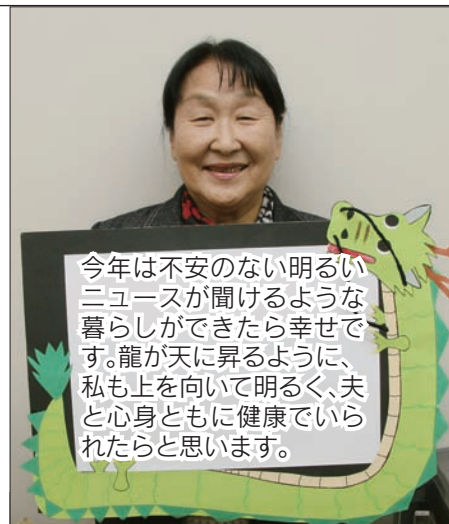 今年は不安のない明るい
ニュースが聞けるような
暮らしができたら幸せで
す。龍が天に昇るように、
私も上を向いて明るく、夫
と心身ともに健康でいら
れたらと思います。